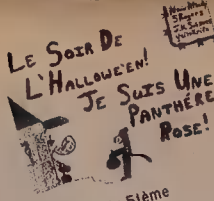 LE SOIR DE
L'HALLOWE'EN!
JE SUIS UNE
PANTHÈRE
ROSE!
5ième